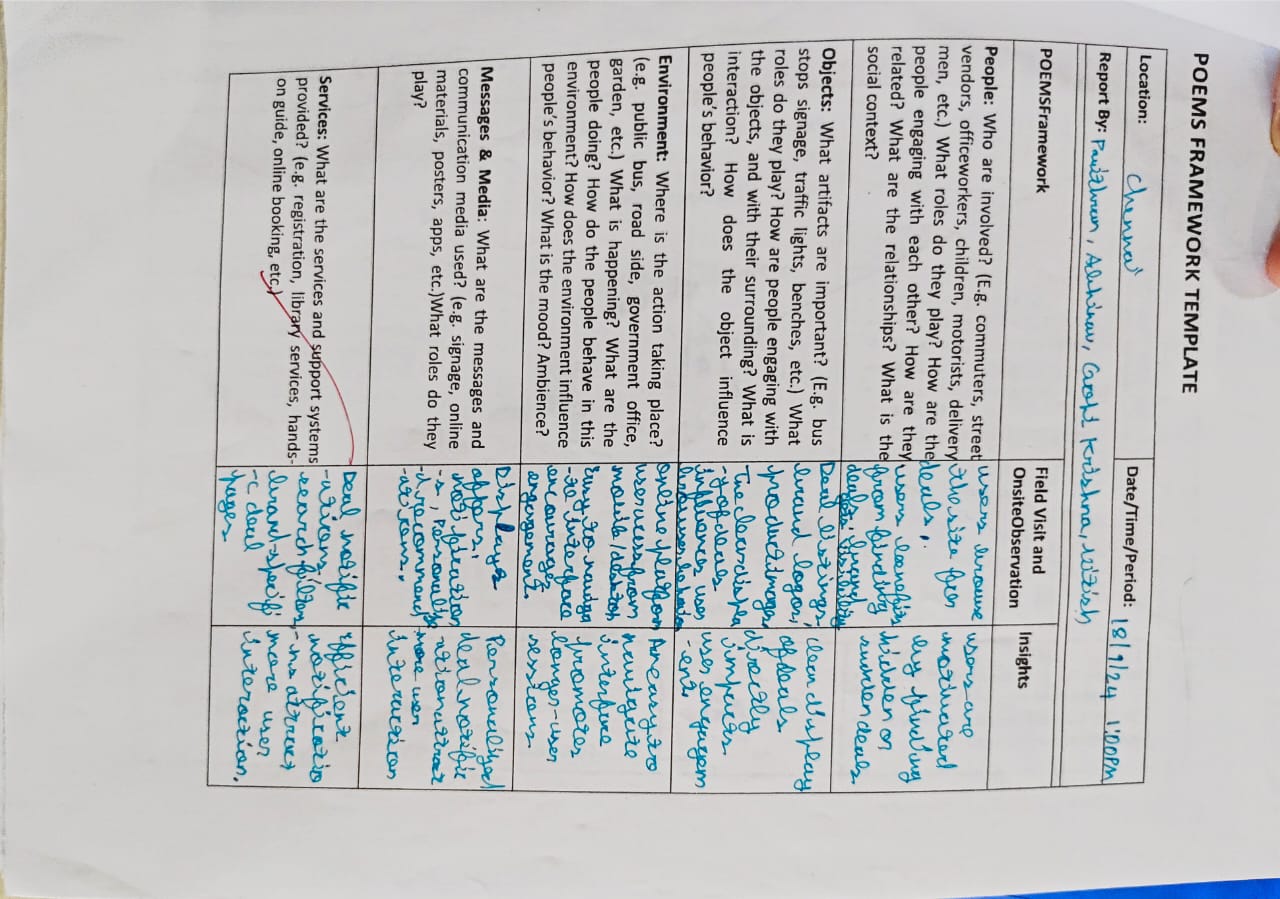 POEMS FRAMEWORK TEMPLATE
Location: Chennai
Date/Time/Period: 18/9/24 1:00PM
Report By: Pavithran, Abhinav, Gophi Krishna, Nitish
POEMSFramework
Field Visit and
OnsiteObservation
Insights
People: Who are involved? (E.g. commuters, street
vendors, officeworkers, children, motorists, delivery
men, etc.) What roles do they play? How are the
people engaging with each other? How are they
related? What are the relationships? What is the
social context?
users browse
the site for
deals.
users benefits
from finding
deals, brand
gets visibility
users are
motivated
by finding
hidden or
sudden deals.
Objects: What artifacts are important? (E.g. bus
stops signage, traffic lights, benches, etc.) What
roles do they play? How are people engaging with
the objects, and with their surrounding? What is
interaction? How does the object influence
people's behavior?
Deal listings,
brand logos,
product images,
The clear displa
-y of deals
influences user
browser behavior
clear display
of deals
directly
impacts
user engagem
-ent.
Environment: Where is the action taking place?
(e.g. public bus, road side, government office,
garden, etc.) What is happening? What are the
people doing? How do the people behave in this
environment? How does the environment influence
people's behavior? What is the mood? Ambience?
online platform
user from
mobile/desktop
Easy to naviga
-te interface
encourages
engagement.
An easy to
navigate
interface
promotes
longer-user
sessions
Messages & Media: What are the messages and
communication media used? (e.g. signage, online
materials, posters, apps, etc.)What roles do they
play?
Displays
offers,
notification
-s, Personalise
-d recommend
-ations.
Personalised
deal notific
-ation attract
more user
interaction
Services: What are the services and support systems
provided? (e.g. registration, library services, hands-
on guide, online booking, etc.)
Deal notific
-ations,
search filter,
brand-specifi
-c deal
pages
Efficient
notificatio
-ns attract
more user
interaction.